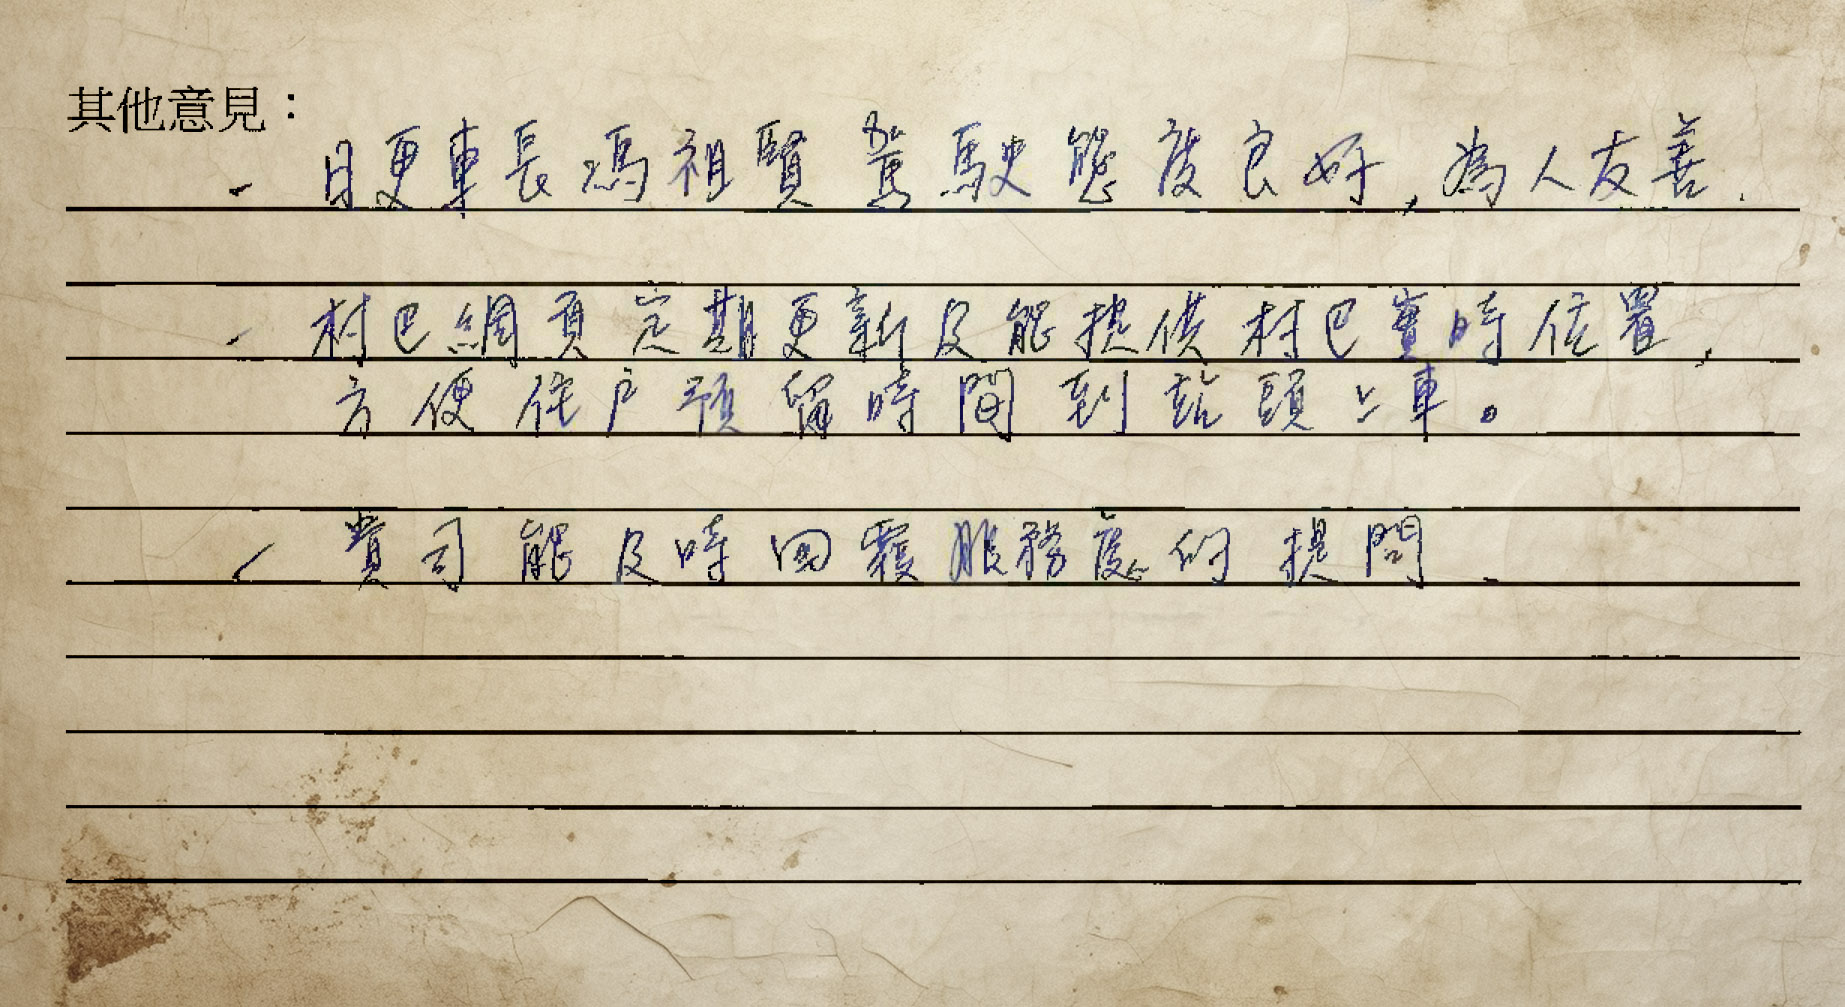 其他意見：
- 日更車長馮祖賢駕駛態度良好，為人友善.
- 村巴網頁定期更新及能提供村巴實時位置，
方便住戶預留時間到站頭上車。
- 貴司能及時回覆服務處的提問.